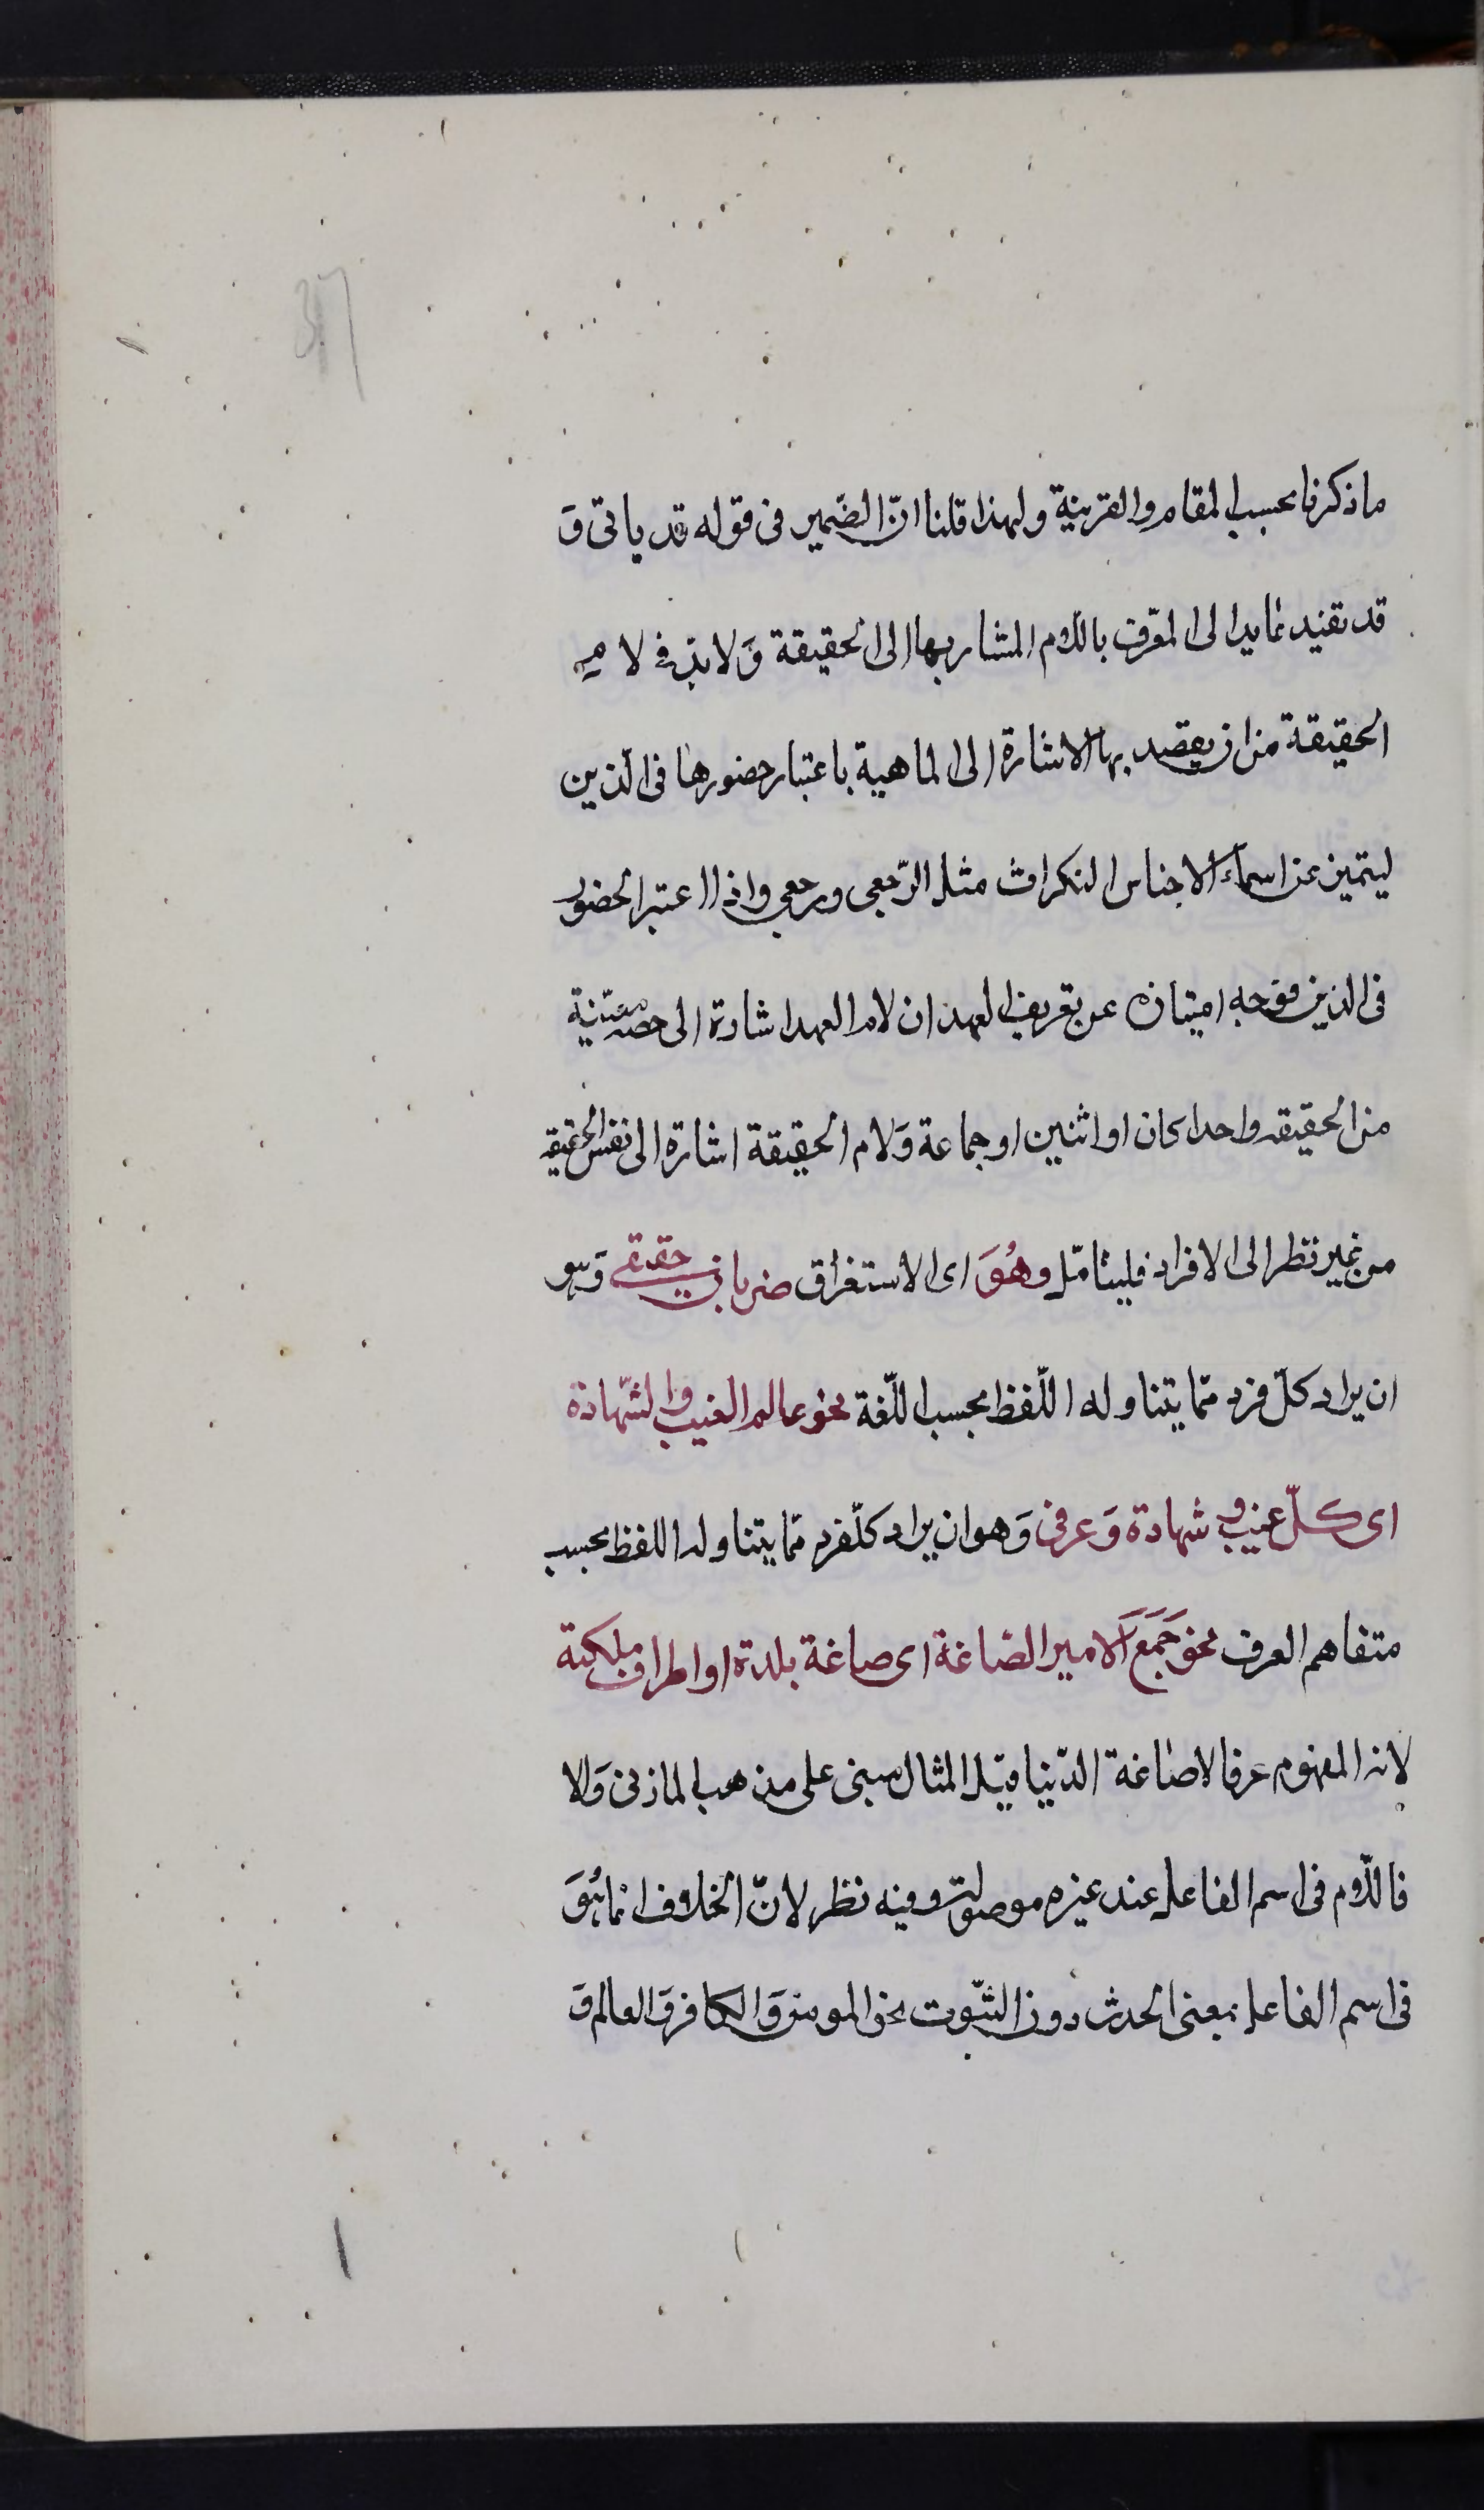 ما ذكرنا بحسب المقام والقرينة ولهذا قلنا انّ الضّمير فى قوله قد ياتى وَ
قد يفيد عايدا لى المعّرف باللّام المشار بها الى الحقيقة وَلا بدّ فى لام
الحقيقة من ان يقصد بها الاشارة الى الماهية باعتبار حضورها فى الذهن
ليتميز عن اسماء الاجناس النكرات مثل الرّجعى ورجعى واذا اعتبر الحضور
فى الذهن فوجه امتيازه عن تعريف العهد ان لام العهد اشارة الى حصّة معيّنة
من الحقيقه واحدا كان او اثنين او جماعة وَلام الحقيقة اشارة الى نفس الحقيقه
من غير نظر الى الافراد فليتامّل وهُوَ اى الاستغراق ضربان حقيقى وَهو
ان يراد كلّ فرد ممّا يتناوله اللّفظ بحسب اللّغة نحو عالم الغيب والشّهادة
اى كلّ غيب وشهادة وَعرفى وَهو ان يراد كلّ فرد ممّا يتناوله اللفظ بحسب
متفاهم العرف نحو جَمَعَ الامير الصّاغة اى صاغة بلدة او اطراف مملكته
لانه المفهوم عرفا لا صاغة الدّنيا قيل المثال مبنى على مذهب المازنى وَالا
فاللّام فى اسم الفاعل عند غيره موصولة وفيه نظر لانّ الخلاف انما هُوَ
فى اسم الفاعل بمعنى الحدث دون الثّبوت نحو المومن وَالكافر وَالعالم وَ